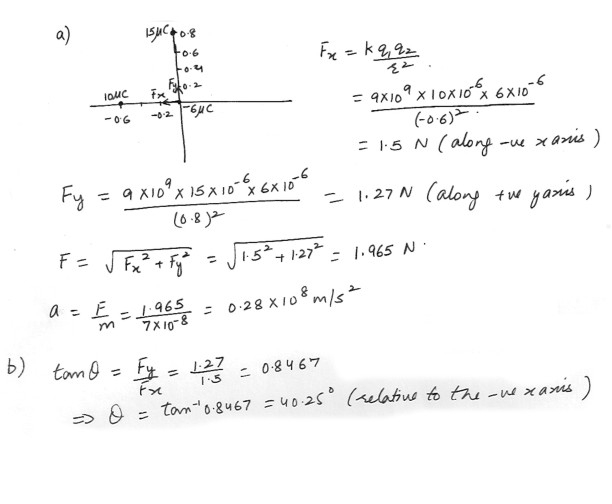 a) 15μC 0.8
0.6
0.4
Fy 0.2
10μC Fx -6μC
-0.6 -0.2
Fx = k q₁q₂ / r²
= 9×10⁹ × 10×10⁻⁶ × 6×10⁻⁶ / (-0.6)²
= 1.5 N (along -ve x axis)
Fy = 9×10⁹ × 15×10⁻⁶ × 6×10⁻⁶ / (0.8)² = 1.27 N (along +ve y axis)
F = √Fx² + Fy² = √1.5² + 1.27² = 1.965 N.
a = F/m = 1.965 / 7×10⁻⁸ = 0.28 × 10⁸ m/s²
b) tanθ = Fy/Fx = 1.27/1.5 = 0.8467
⇒ θ = tan⁻¹ 0.8467 = 40.25° (relative to the -ve x axis)